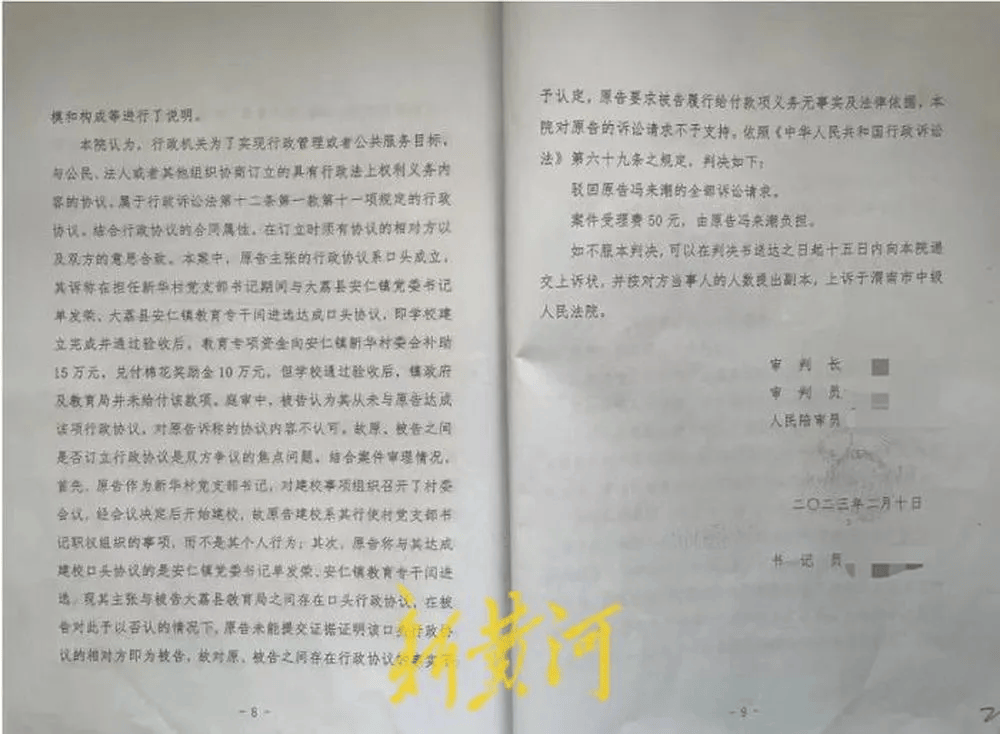 模和构成等进行了说明。
本院认为，行政机关为了实现行政管理或者公共服务目标，
与公民、法人或者其他组织协商订立的具有行政法上权利义务内
容的协议，属于行政诉讼法第十二条第一款第十一项规定的行政
协议。结合行政协议的合同属性，在订立时须有协议的相对方以
及双方的意思合致。本案中，原告主张的行政协议系口头成立，
其诉称在担任新华村党支部书记期间与大荔县安仁镇党委书记
单发荣、大荔县安仁镇教育专干间进选达成口头协议，即学校建
立完成并通过验收后，教育专项资金向安仁镇新华村委会补助
15万元，兑付棉花奖励金10万元，但学校通过验收后，镇政府
及教育局并未给付该款项。庭审中，被告认为其从未与原告达成
该项行政协议，对原告诉称的协议内容不认可。故原、被告之间
是否订立行政协议是双方争议的焦点问题。结合案件审理情况，
首先，原告作为新华村党支部书记，对建校事项组织召开了村委
会议，经会议决定后开始建校，故原告建校系其行使村党支部书
记职权组织的事项，而不是其个人行为；其次，原告称与其达成
建校口头协议的是安仁镇党委书记单发荣、安仁镇教育专干间进
选，现其主张与被告大荔县教育局之间存在口头行政协议，在被
告对此予以否认的情况下，原告未能提交证据证明该口头行政协
议的相对方即为被告，故对原、被告之间存在行政协议的事实不
- 8 -
予认定，原告要求被告履行给付款项义务无事实及法律依据，本
院对原告的诉讼请求不予支持。依照《中华人民共和国行政诉讼
法》第六十九条之规定，判决如下：
驳回原告冯来潮的全部诉讼请求。
案件受理费50元，由原告冯来潮负担。
如不服本判决，可以在判决书送达之日起十五日内向本院递
交上诉状，并按对方当事人的人数提出副本，上诉于渭南市中级
人民法院。
审 判 长
审 判 员
人民陪审员
二〇二三年二月十日
书 记 员
- 9 -
新黄河